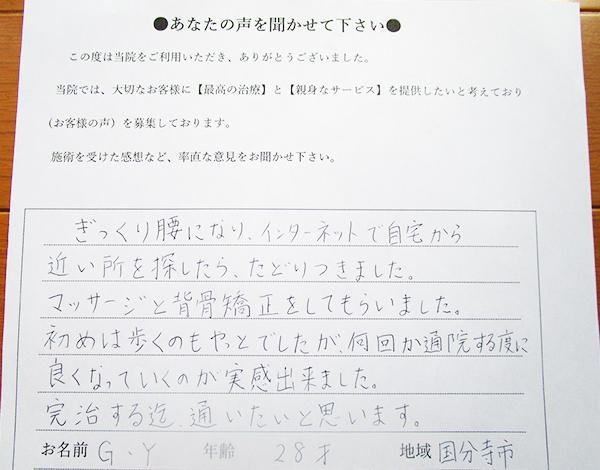 ●あなたの声を聞かせて下さい●
この度は当院をご利用いただき、ありがとうございました。
当院では、大切なお客様に【最高の治療】と【親身なサービス】を提供したいと考えており
(お客様の声）を募集しております。
施術を受けた感想など、率直な意見をお聞かせ下さい。
ぎっくり腰になり、インターネットで自宅から
近い所を探したら、たどりつきました。
マッサージと背骨矯正をしてもらいました。
初めは歩くのもやっとでしたが、何回か通院する度に
良くなっていくのが実感出来ました。
完治する迄、通いたいと思います。
お名前 G・Y 年齢 28才 地域 国分寺市